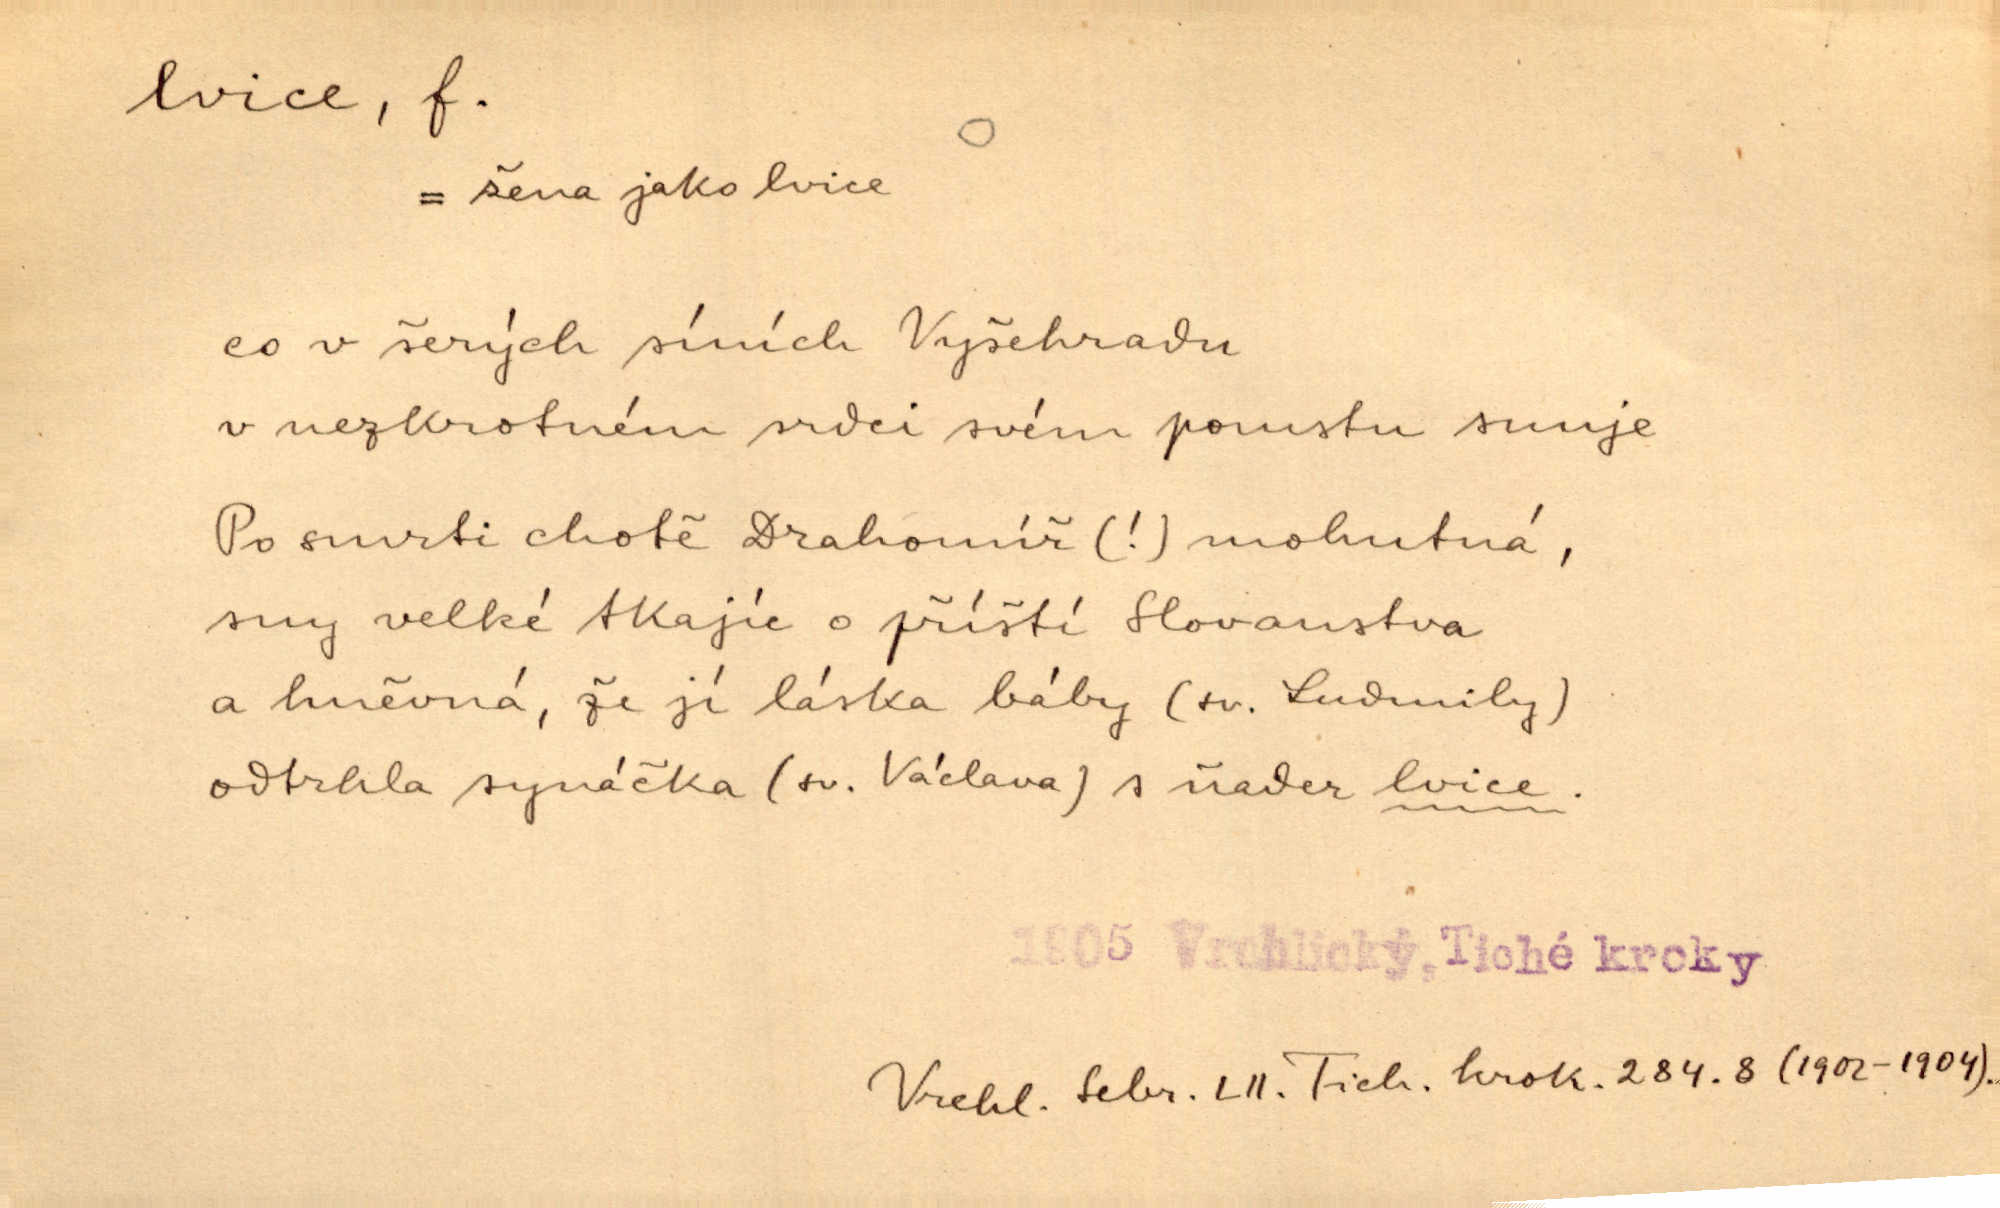 lvice, f.
= žena jako lvice
co v šerých síních Vyšehradu
v nezkrotném srdci svém pomstu snuje
Po smrti chotě Drahomíř (!) mohutná,
sny velké tkajíc o příští Slovanstva
a hněvná, že jí láska báby (sv. Ludmily)
odtrhla synáčka (sv. Václava) s ňader lvice.
1905 Vrchlický, Tiché kroky
Vrchl. Sebr. LII. Tich. krok. 284. 8 (1902-1904).